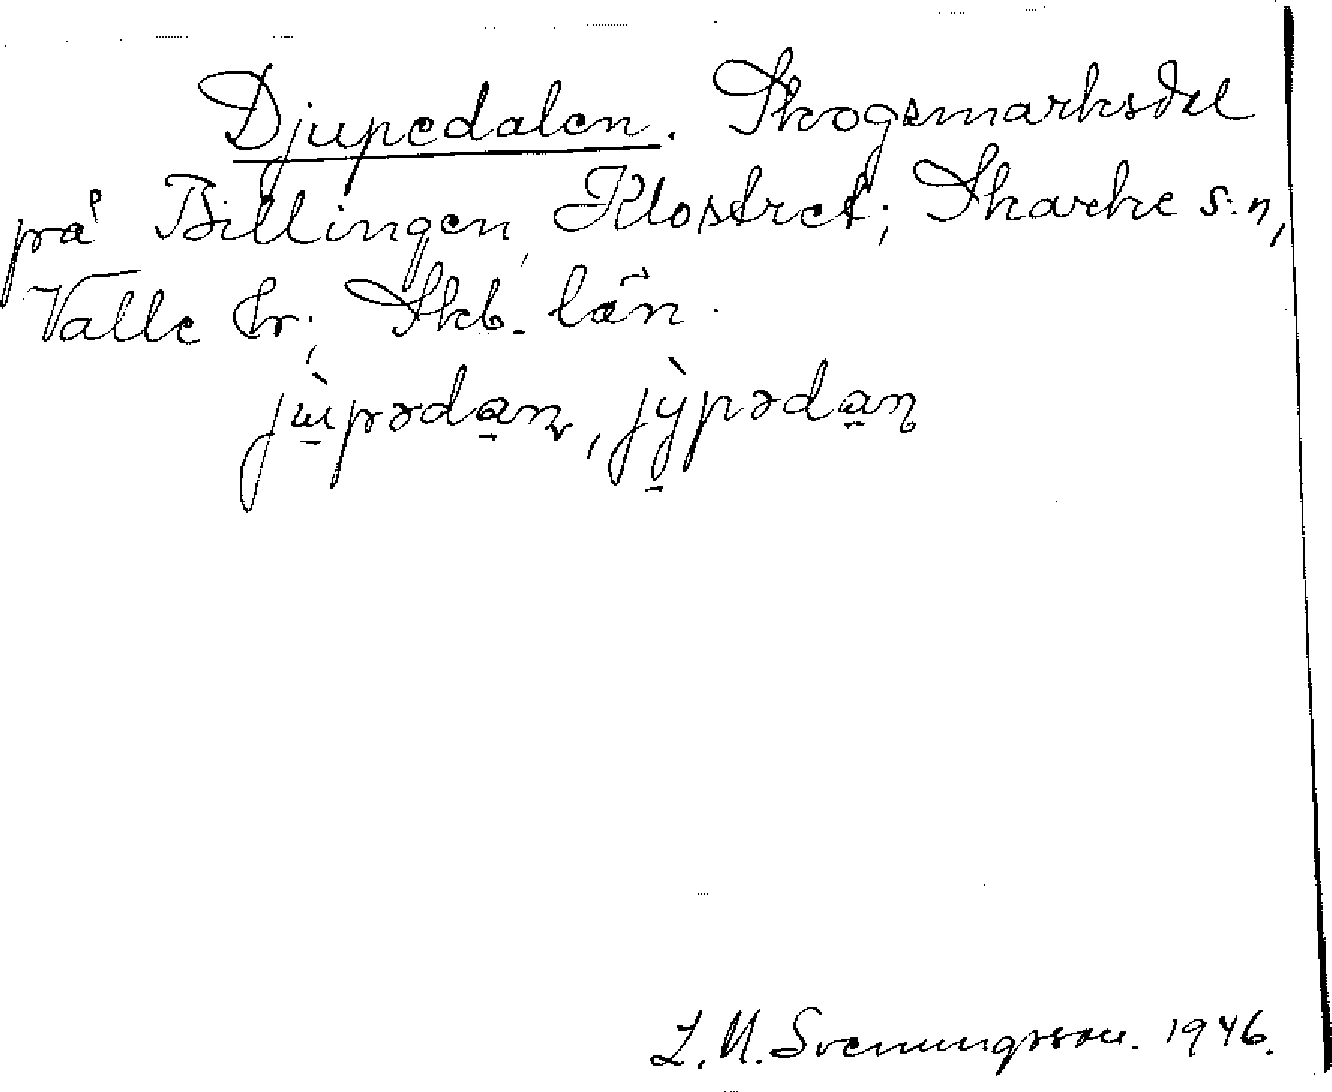 Djupedalen. Skogsmarksdel
på Billingen, Klostret; Skarke s:n,
Valle hr; Skb. län.
jɯ̀pədan, jỳpədaɳ
L. M. Svenungsson. 1946.